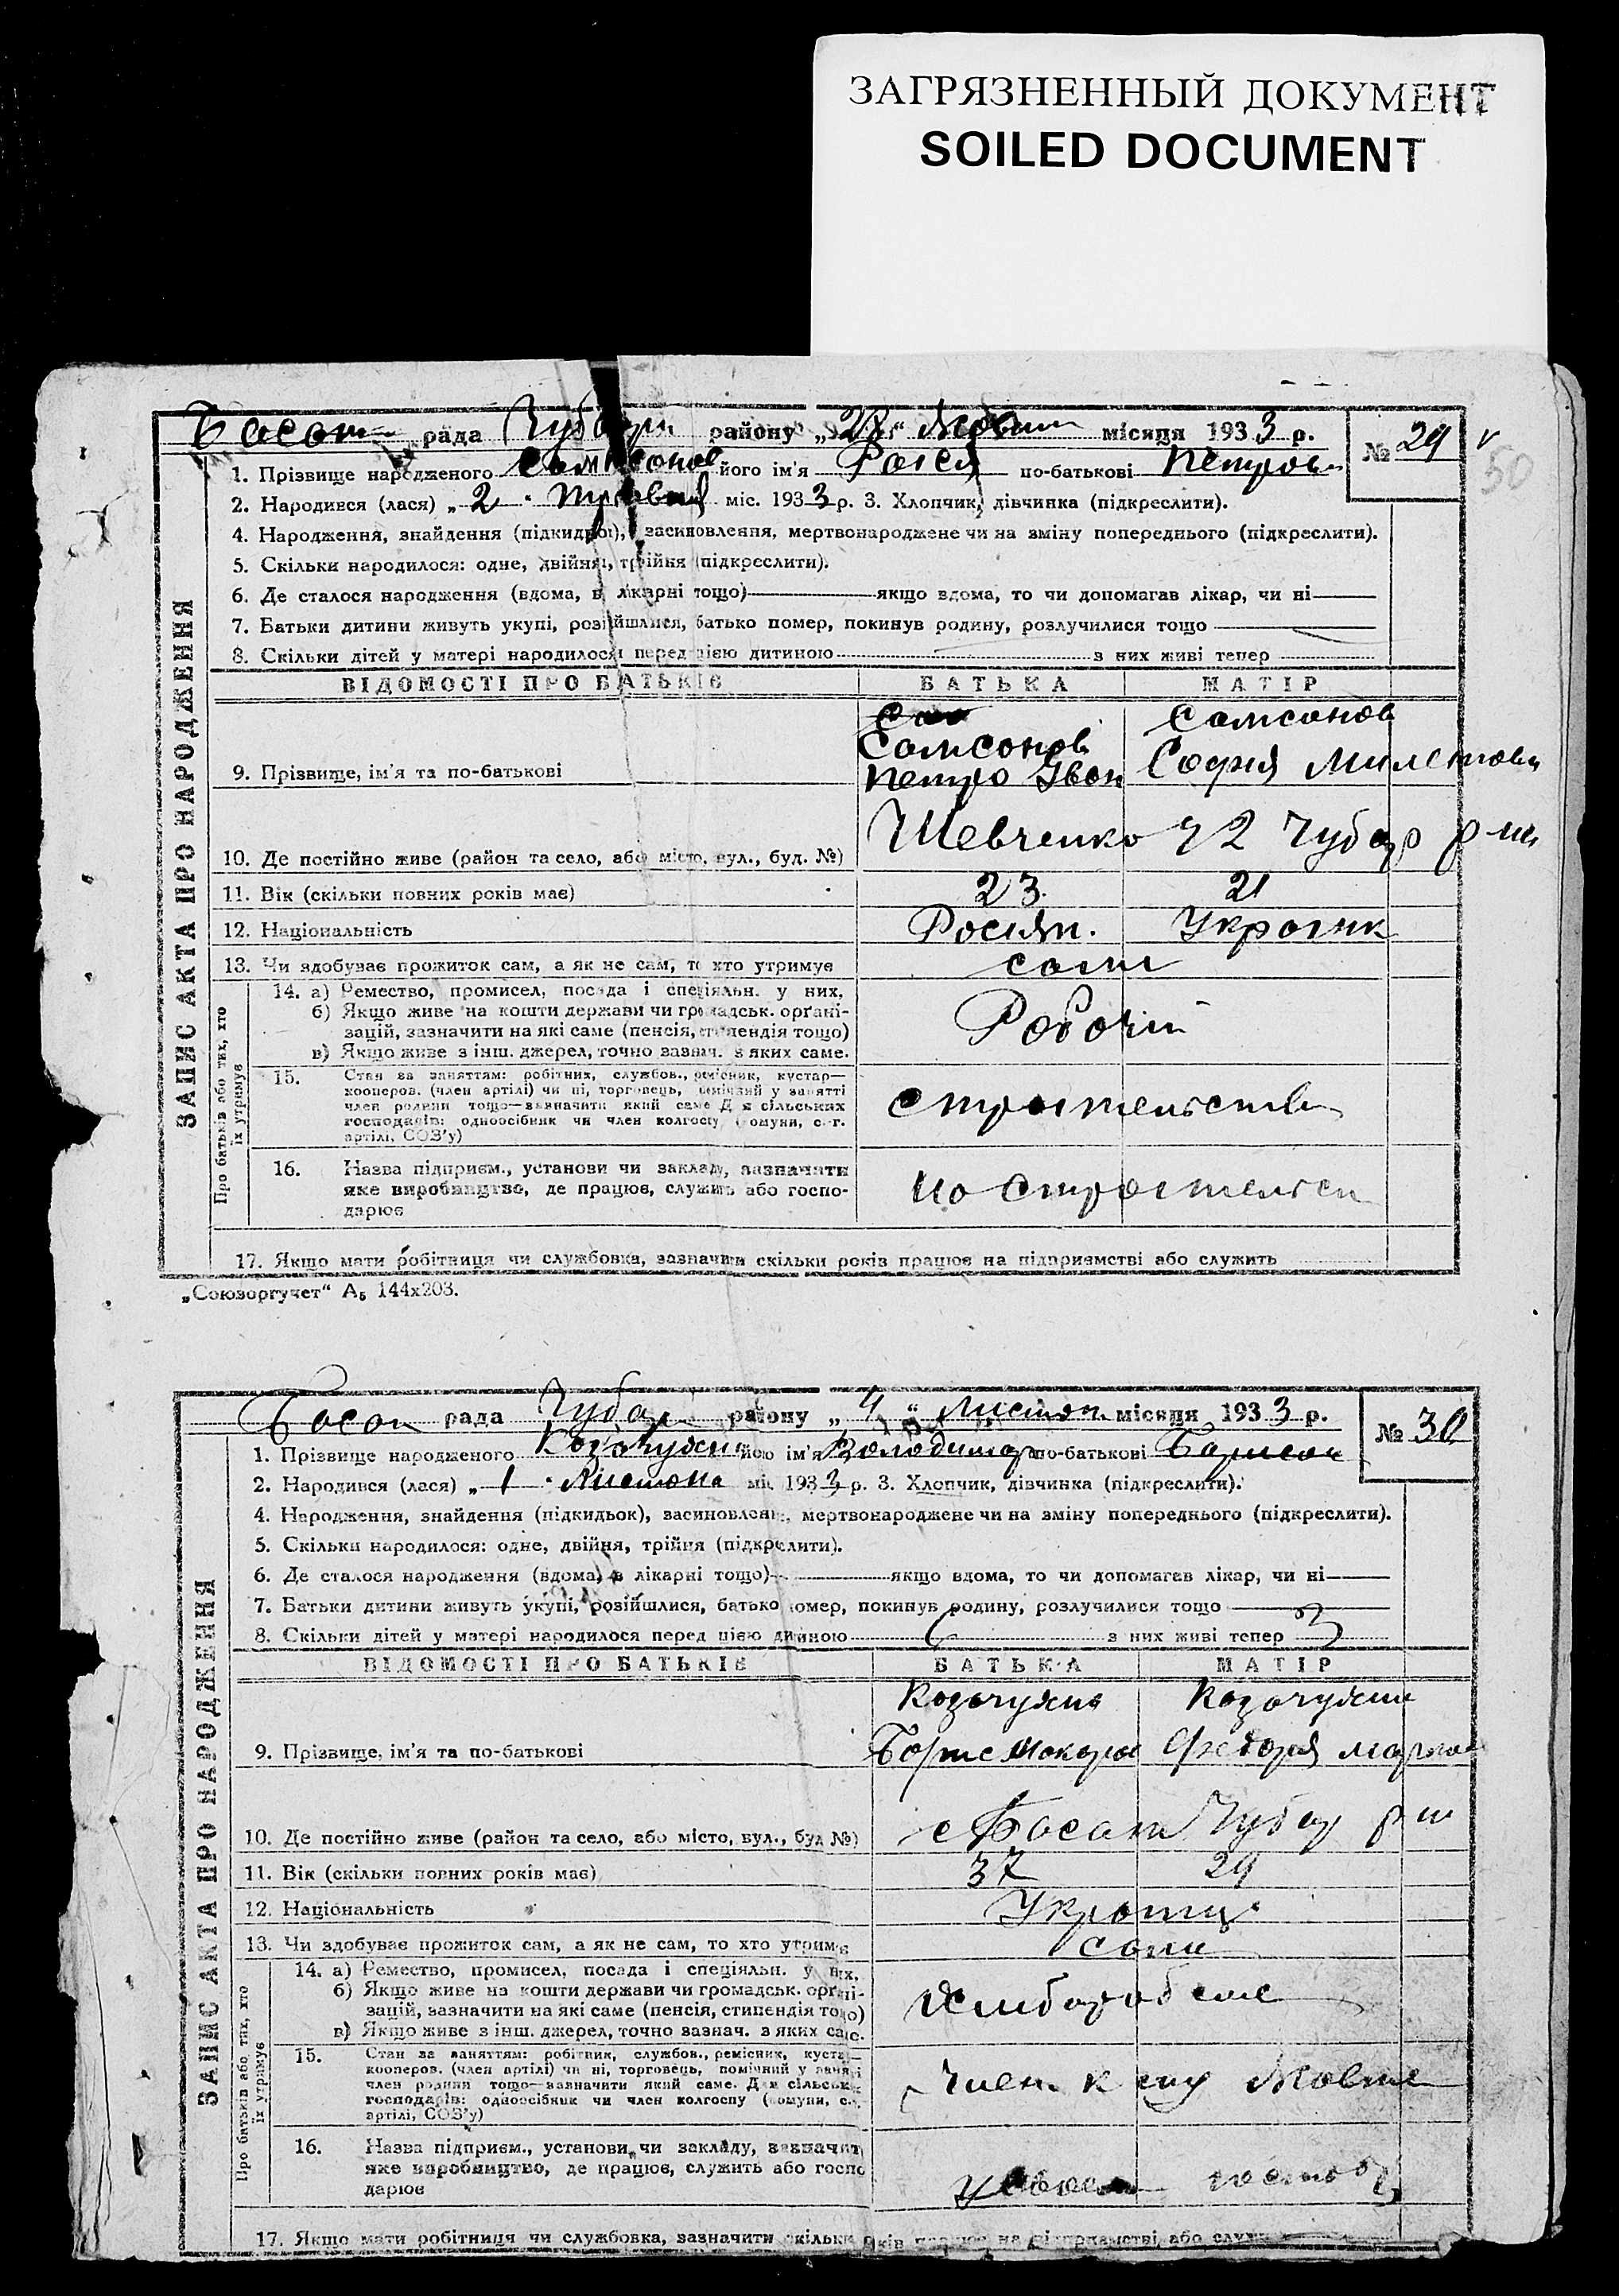 ЗАГРЯЗНЕННЫЙ ДОКУМЕНТ
SOILED DOCUMENT
Басан рада Чубар району „ “ місяця 1933 р.
№ 29
50
1. Прізвище народженого Самсонов його ім'я Раїся по-батькові Петров
2. Народився (лася) „2“ травня міс. 1933 р. 3. Хлопчик, дівчинка (підкреслити).
4. Народження, знайдення (підкидьок), засиновлення, мертвонароджене чи на зміну попереднього (підкреслити).
5. Скільки народилося: одне, двійня, трійня (підкреслити).
6. Де сталося народження (вдома, в лікарні тощо) якщо вдома, то чи допомагав лікар, чи ні
7. Батьки дитини живуть укупі, розійшлися, батько помер, покинув родину, розлучилися тощо
8. Скільки дітей у матері народилося перед цією дитиною з них живі тепер
ЗАПИС АКТА ПРО НАРОДЖЕННЯ
ВІДОМОСТІ ПРО БАТЬКІВ БАТЬКА МАТІР
Самсонов Самсонов
9. Прізвище, ім'я та по-батькові Петро Іван София
10. Де постійно живе (район та село, або місто, вул., буд. №) Шевченко 42 Чубар
11. Вік (скільки повних років має) 23. 21
12. Національність Росіян. Україик
13. Чи здобуває прожиток сам, а як не сам, то хто утримує сами
Про батьків або тих, хто їх утримує
14. а) Ремество, промисел, посада і спеціяльн. у них,
б) Якщо живе на кошти держави чи громадськ. орґані-
зацій, зазначити на які саме (пенсія, стипендія тощо)
в) Якщо живе з інш. джерел, точно зазнач. з яких саме.
Робочий
15. Стан за заняттям: робітник, службов., ремісник, кустар—
кооперов. (член артілі) чи ні, торговець, помічний у занятті
член родини тощо—зазначити який саме. Для сільських
господарів: одноосібник чи член колгоспу (комуни, с.-г.
артілі, СОЗ'у)
16. Назва підприєм., установи чи закладу, зазначити
яке виробництво, де працює, служить або госпо-
дарює
17. Якщо мати робітниця чи службовка, зазначити скільки років працює на підприємстві або служить
„Союзоргучет“ А₅ 144х203.
Басан рада Чубар району „4“ Листоп. місяця 1933 р.
№ 30
1. Прізвище народженого його ім'я Володимир по-батькові Борисов
2. Народився (лася) „1“ Листопа міс. 1933 р. 3. Хлопчик, дівчинка (підкреслити).
4. Народження, знайдення (підкидьок), засиновлення, мертвонароджене чи на зміну попереднього (підкреслити).
5. Скільки народилося: одне, двійня, трійня (підкреслити).
6. Де сталося народження (вдома, в лікарні тощо) якщо вдома, то чи допомагав лікар, чи ні
7. Батьки дитини живуть укупі, розійшлися, батько помер, покинув родину, розлучилися тощо
8. Скільки дітей у матері народилося перед цією дитиною 6 з них живі тепер 3
ЗАПИС АКТА ПРО НАРОДЖЕННЯ
ВІДОМОСТІ ПРО БАТЬКІВ БАТЬКА МАТІР
9. Прізвище, ім'я та по-батькові Борис Макаров
10. Де постійно живе (район та село, або місто, вул., буд №) с Басан Чубар
11. Вік (скільки повних років має) 37 29
12. Національність Українц
13. Чи здобуває прожиток сам, а як не сам, то хто утримує сами
Про батьків або тих, хто їх утримує
14. а) Ремество, промисел, посада і спеціяльн. у них,
б) Якщо живе на кошти держави чи громадськ. орґані-
зацій, зазначити на які саме (пенсія, стипендія тощо)
в) Якщо живе з інш. джерел, точно зазнач. з яких саме.
15. Стан за заняттям: робітник, службов., ремісник, кустар—
кооперов. (член артілі) чи ні, торговець, помічний у занятті
член родини тощо—зазначити який саме. Для сільських
господарів: одноосібник чи член колгоспу (комуни, с.-г.
артілі, СОЗ'у)
Член
16. Назва підприєм., установи чи закладу, зазначити
яке виробництво, де працює, служить або госпо
дарює
17. Якщо мати робітниця чи службовка, зазначити скільки років працює на підприємстві або служить